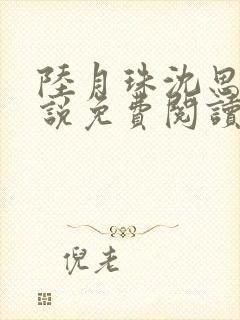 陸月珠沈思
說免費閱讀
倪老